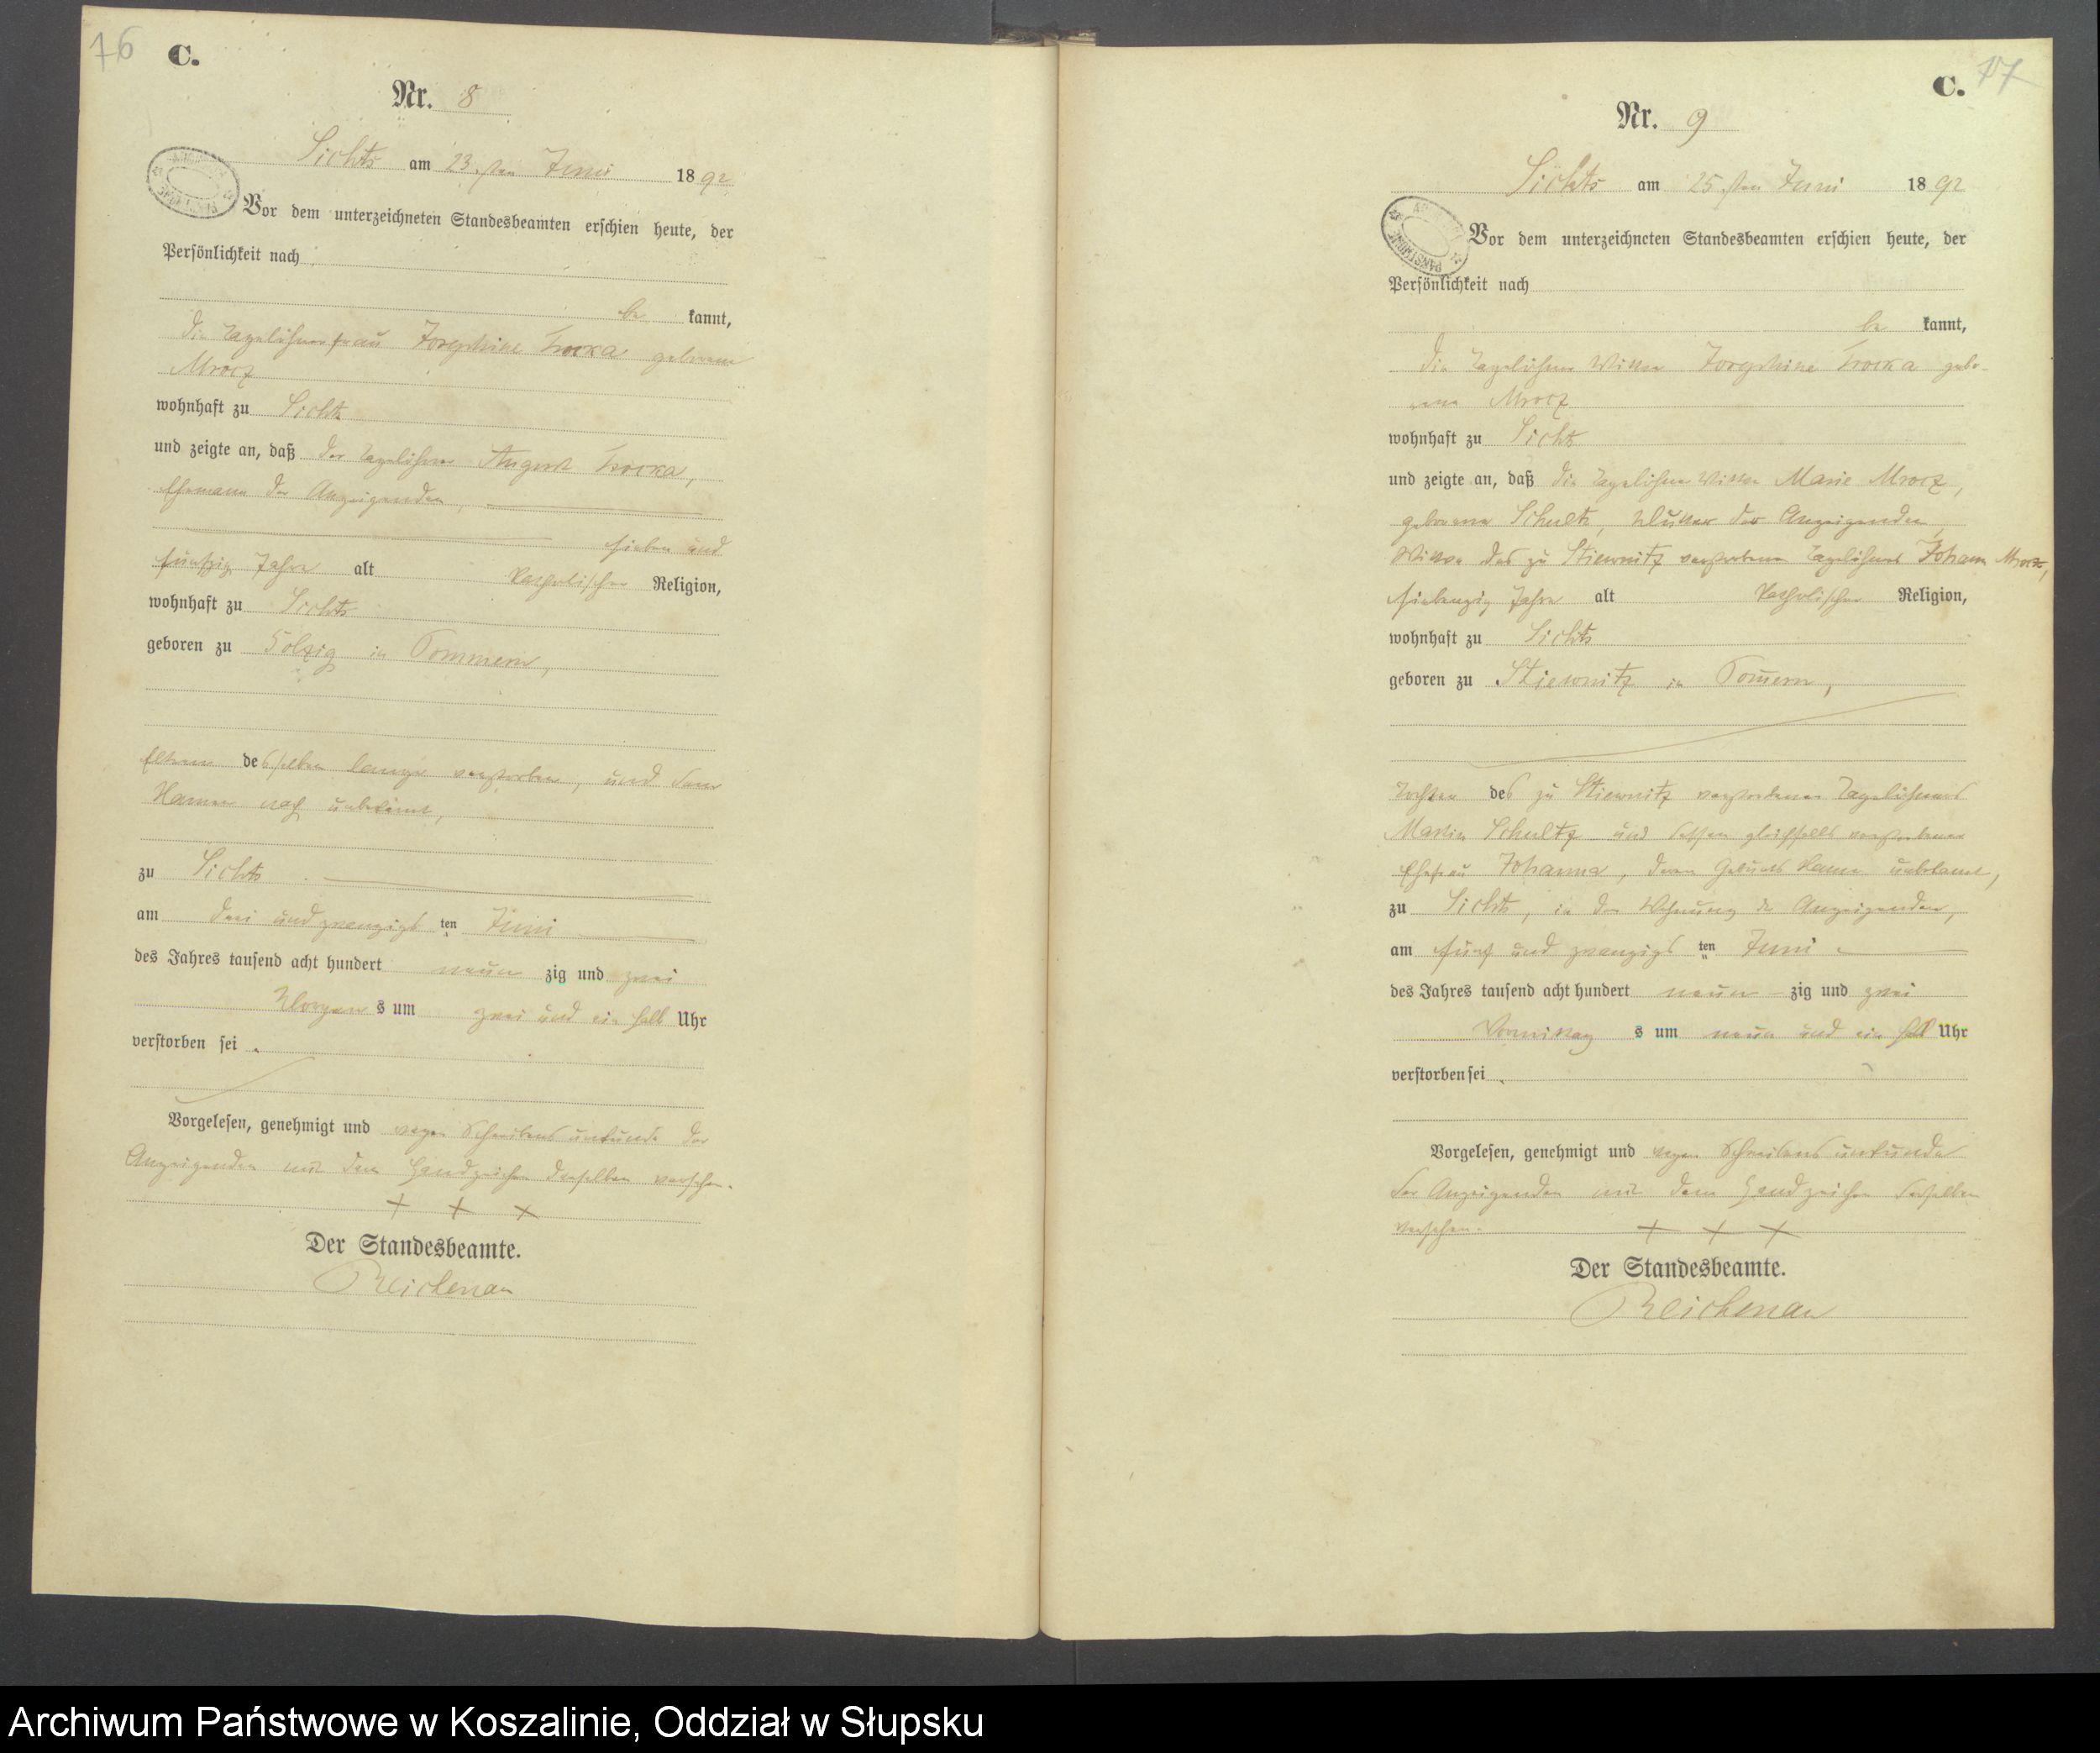 76
C.
Nr. 8
Sichts am 23.sten Juni 1892
Vor dem unterzeichneten Standesbeamten erschien heute, der
Persönlichkeit nach
be kannt,
die Tagelöhnerfrau Josephine Trocka geborene
Mrocz
wohnhaft zu Sichts
und zeigte an, daß der Tagelöhner August Trocka,
Ehemann der Anzeigenden,
sieben und
fünfzig Jahre alt katholischer Religion,
wohnhaft zu Sichts
geboren zu Solzig in Pommern,
Eltern desselben lange verstorben, und dem
Namen nach unbekannt,
zu Sichts
am drei und zwanzigs ten Juni
des Jahres tausend acht hundert neun zig und zwei
Morgens um zwei und ein halb Uhr
verstorben sei.
Vorgelesen, genehmigt und wegen Schreibensunkunde der
Anzeigenden mit dem Handzeichen derselben versehen.
+ + +
Der Standesbeamte.
Reichenau
77
C.
Nr. 9
Sichts am 25.sten Juni 1892
Vor dem unterzeichneten Standesbeamten erschien heute, der
Persönlichkeit nach
be kannt,
die Tagelöhner Wittwe Josephine Trocka gebo-
rene Mrocz
wohnhaft zu Sichts
und zeigte an, daß die Tagelöhner Wittwe Marie Mrocz,
geborene Schultz, Mutter der Anzeigenden,
Wittwe des zu Stiewnitz verstorbenen Tagelöhners Johann Mrocz,
siebenzig Jahre alt katholischer Religion,
wohnhaft zu Sichts
geboren zu Stiewnitz in Pom̅ern,
Tochter des zu Stiewnitz verstorbenen Tagelöhners
Martin Schultz und dessen gleichfalls verstorbenen
Ehefrau Johanna, deren Geburts Name unbekannt,
zu Sichts, in der Wohnung der Anzeigenden,
am fünf und zwanzigs ten Juni
des Jahres tausend acht hundert neun zig und zwei
Vormittags um neun und ein halb Uhr
verstorben sei.
Vorgelesen, genehmigt und wegen Schreibensunkunde
der Anzeigenden mit dem Handzeichen derselben
versehen. + + +
Der Standesbeamte.
Reichenau
Archiwum Państwowe w Koszalinie, Oddział w Słupsku